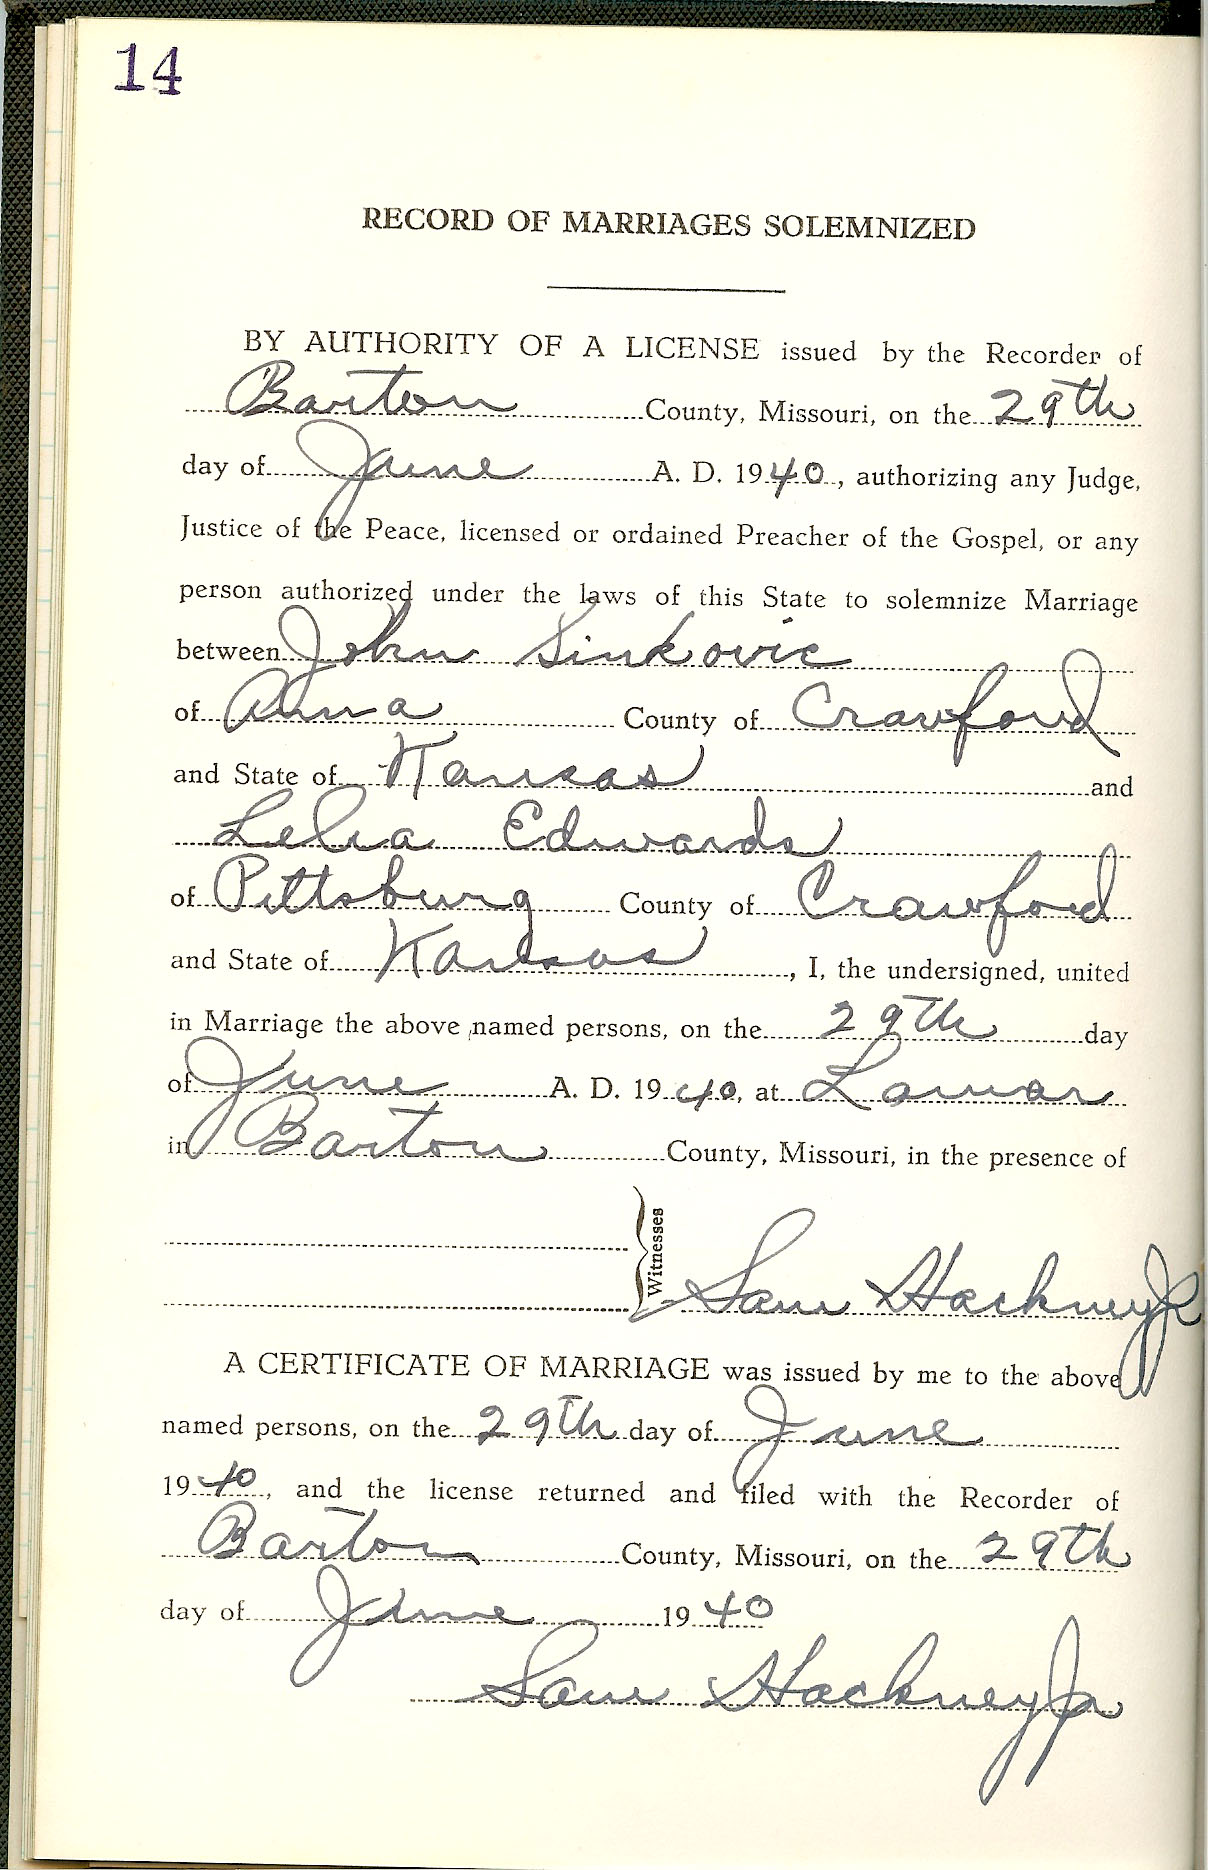 14
RECORD OF MARRIAGES SOLEMNIZED
BY AUTHORITY OF A LICENSE issued by the Recorder of
Barton County, Missouri, on the 29th
day of June A. D. 1940, authorizing any Judge,
Justice of the Peace, licensed or ordained Preacher of the Gospel, or any
person authorized under the laws of this State to solemnize Marriage
between John Sinkovic
of Anna County of Crawford
and State of Kansas and
Lelia Edwards
of Pittsburg County of Crawford
and State of Kansas, I, the undersigned, united
in Marriage the above named persons, on the 29th day
of June A. D. 1940, at Lamar
in Barton County, Missouri, in the presence of
Witnesses
Sam Hackney Jr
A CERTIFICATE OF MARRIAGE was issued by me to the above
named persons, on the 29th day of June
1940, and the license returned and filed with the Recorder of
Barton County, Missouri, on the 29th
day of June 1940
Sam Hackney Jr